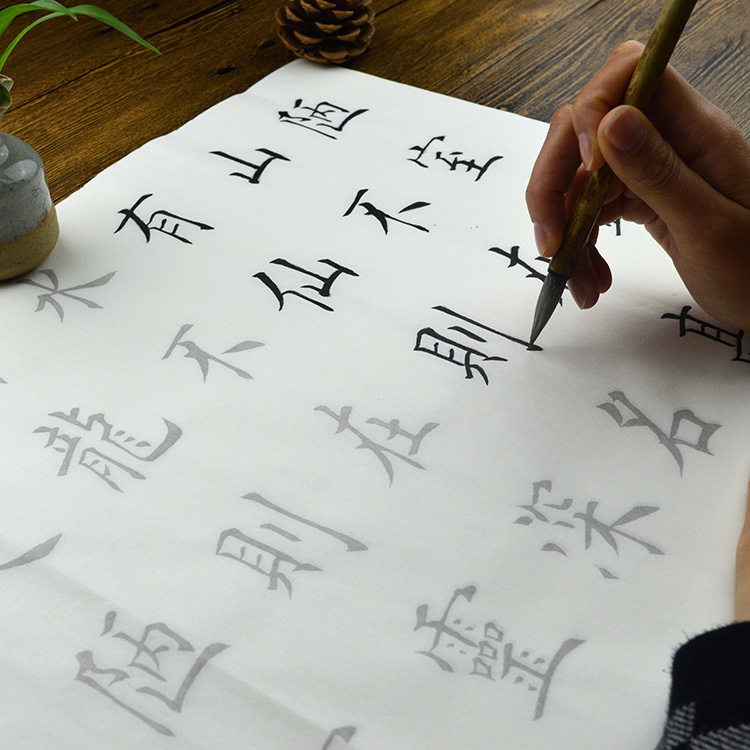 陋室
山不在
有仙則名
水不在深
龍則靈
陋